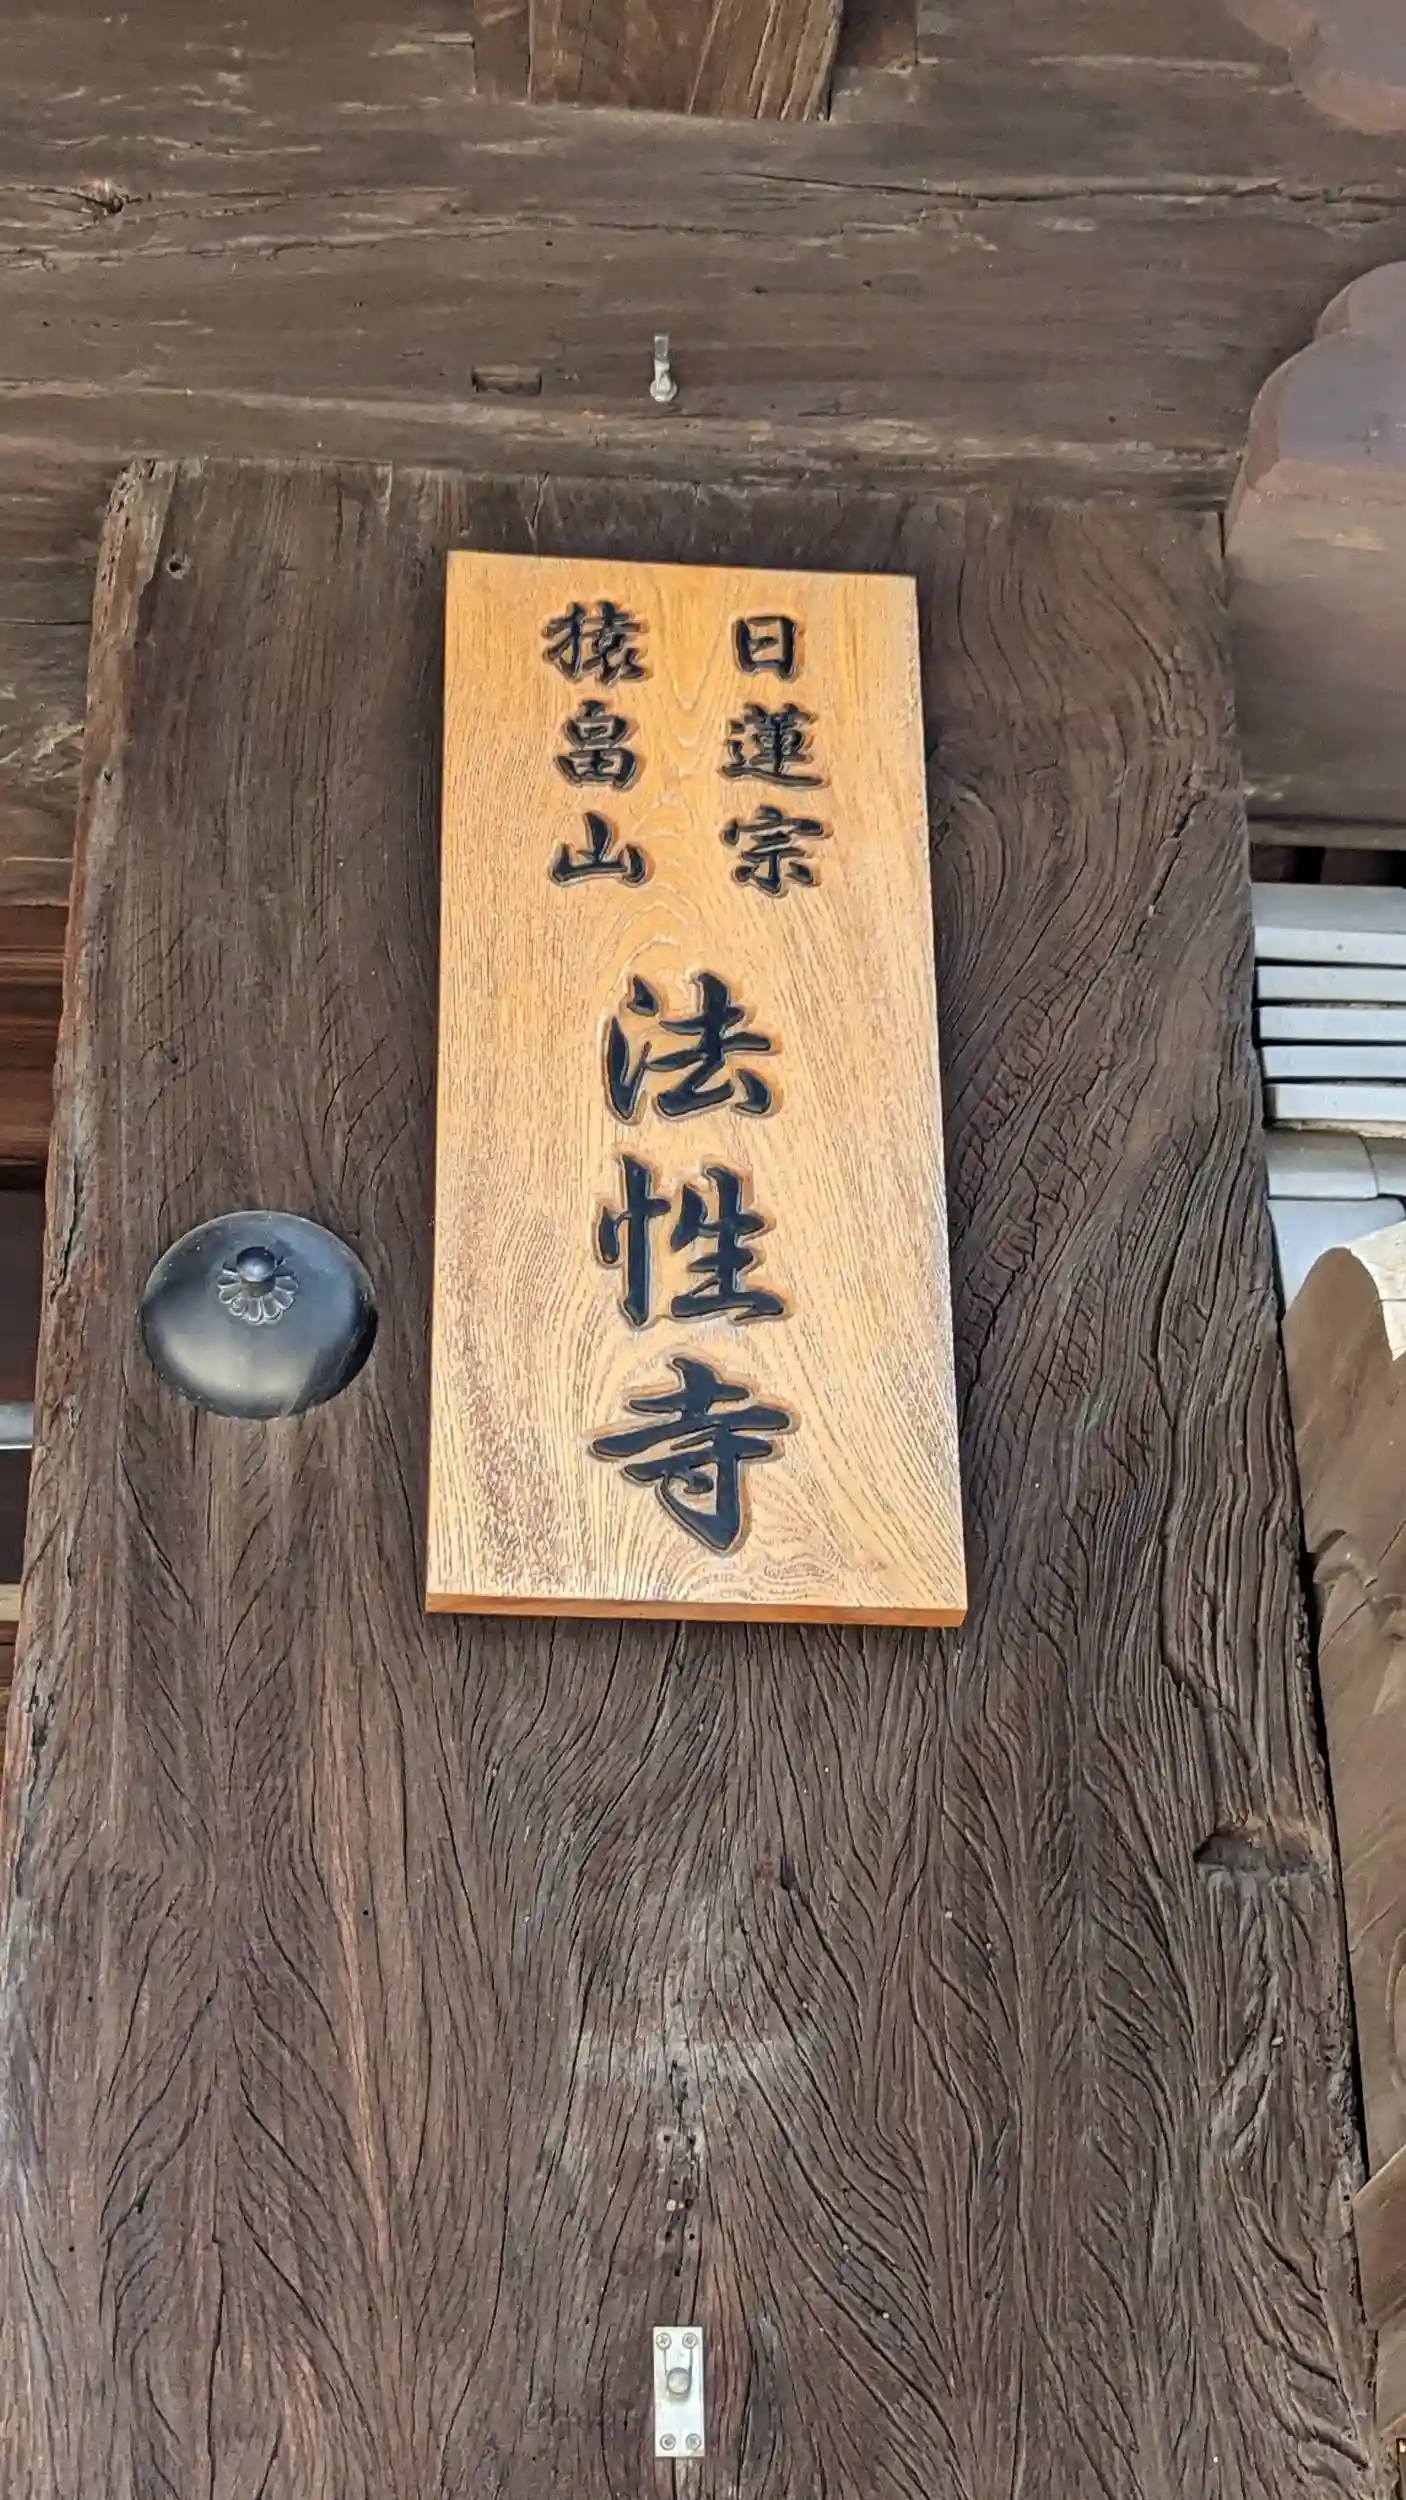 日蓮宗
猿畠山
法性寺